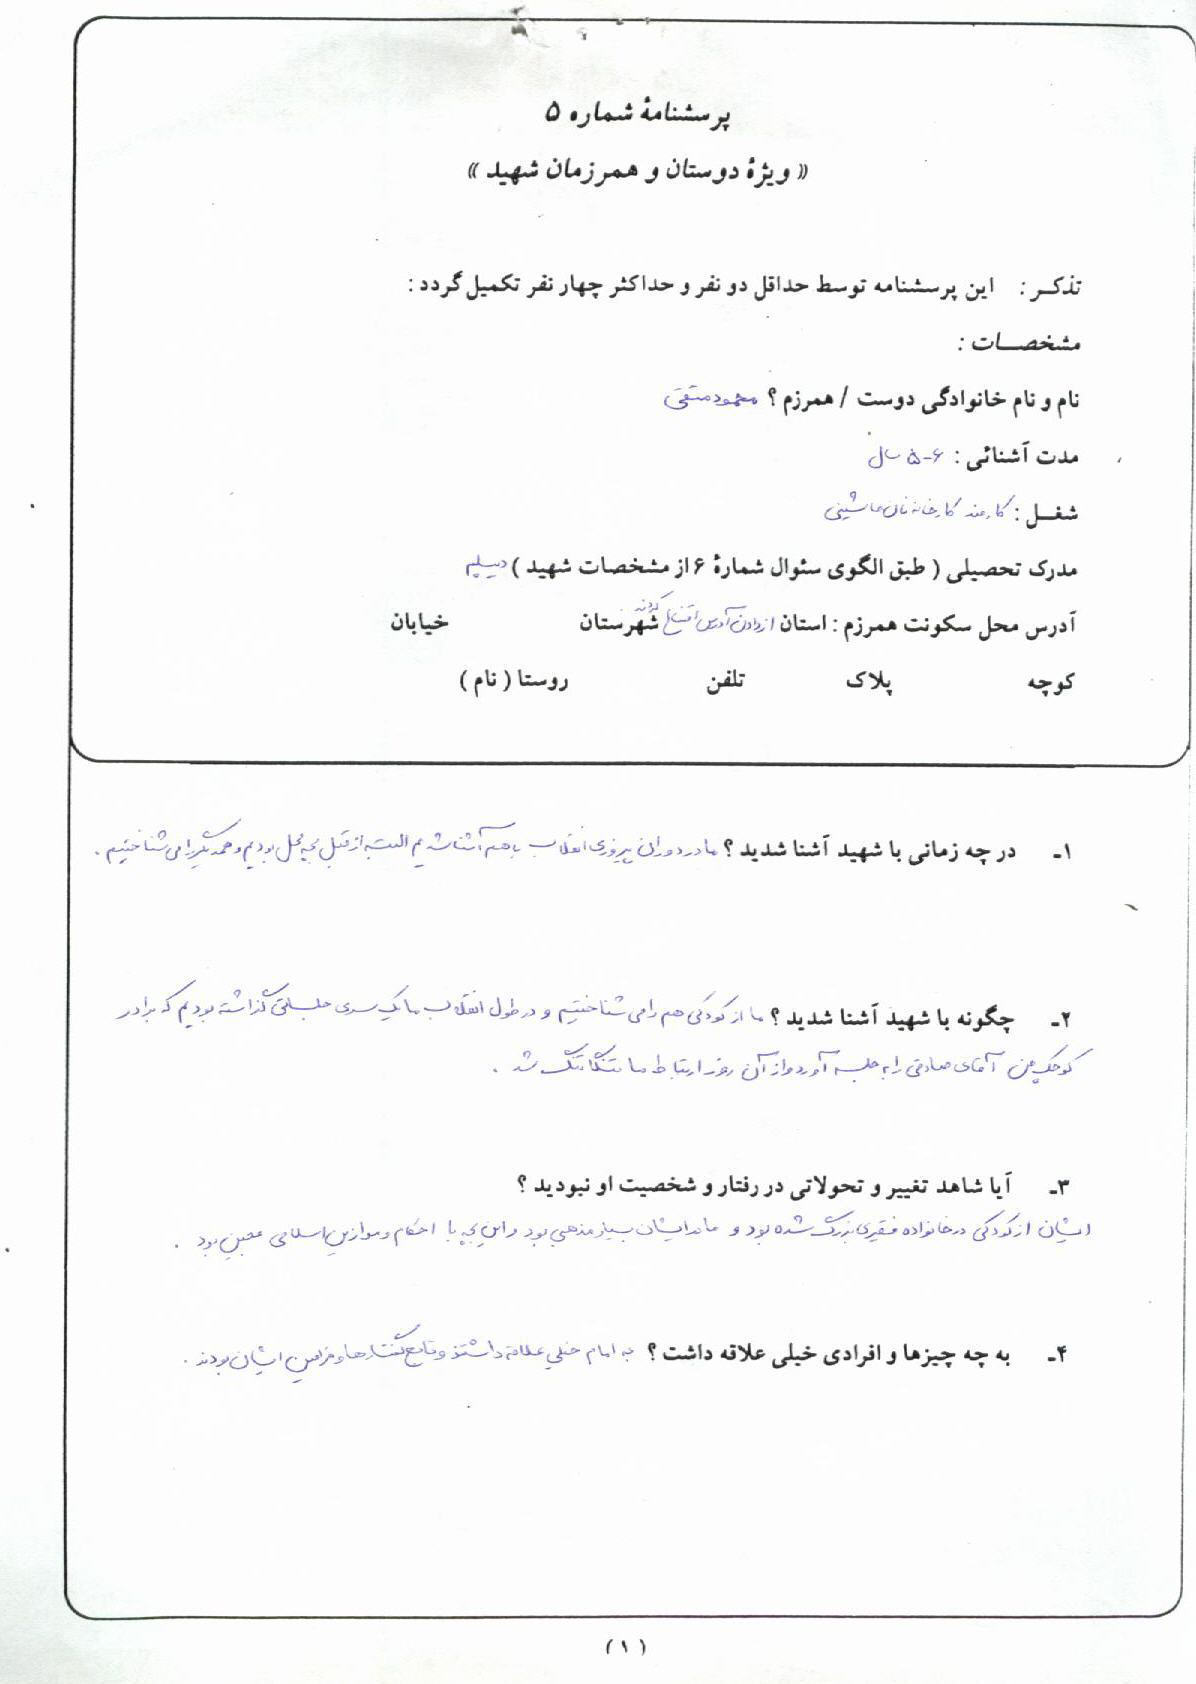 پرسشنامهٔ شماره ۵
« ویژهٔ دوستان و همرزمان شهید »
تذکـر : این پرسشنامه توسط حداقل دو نفر و حداکثر چهار نفر تکمیل گردد :
مشخصـات :
نام و نام خانوادگی دوست / همرزم ؟ محمود متقی
مدت آشنائی : ۶-۵ سال
شغـل : کارمند کارخانه نان ماشینی
مدرک تحصیلی ( طبق الگوی سئوال شمارهٔ ۶ از مشخصات شهید ) دیپلم
آدرس محل سکونت همرزم : استان از دادن آدرس امتناع کردند شهرستان خیابان
کوچه پلاک تلفن روستا ( نام )
۱ـ در چه زمانی با شهید آشنا شدید ؟ ما در دوران پیروزی انقلاب با هم آشنا شدیم البته از قبل بچه محل بودیم و همدیگر را می شناختیم .
۲ـ چگونه با شهید آشنا شدید ؟ ما از کودکی هم را می شناختیم و در طول انقلاب ما یک سری جلساتی گذاشته بودیم که برادر
کوچک من آقای صادقی را به جلسه آورد و از آن روز ارتباط ما تنگاتنگ شد .
۳ـ آیا شاهد تغییر و تحولاتی در رفتار و شخصیت او نبودید ؟
ایشان از کودکی در خانواده فقیری بزرگ شده بود و مادر ایشان بسیار مذهبی بود و این بچه با احکام و موازین اسلامی عجین بود .
۴ـ به چه چیزها و افرادی خیلی علاقه داشت ؟ به امام خیلی علاقه داشتند و تابع گفتارها و فرامین ایشان بودند .
( ۱ )